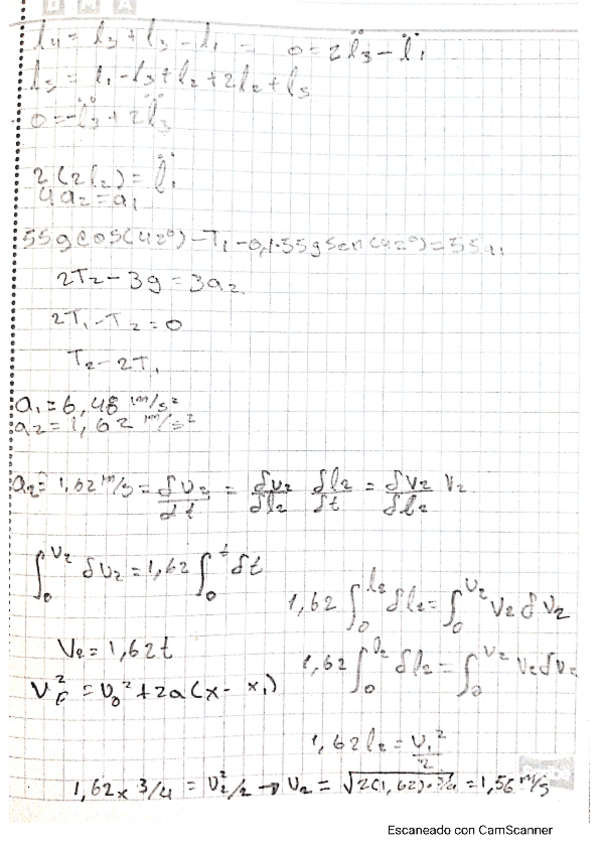 D M A
l₄ = l₃ + l₃ - l₁ - 0 = 2l̈₃ - l̈₁
l₅ = l₁ - l₃ + l₂ + 2l₂ + l₅
0 = -l̈₃ + 2l̈₃
2(2l̈₂) = l̈₁
4a₂ = a₁
55g cos(42°) - T₁ - 0,1·55g Sen(42°) = 55a₁
2T₂ - 3g = 3a₂
2T₁ - T₂ = 0
T₂ - 2T₁
a₁ = 6,48 m/s²
a₂ = 1,62 m/s²
a₂ = 1,62 m/s = δv₂/δt = δv₂/δl₂ δl₂/δt = δv₂/δl₂ v₂
∫₀^v₂ δv₂ = 1,62 ∫₀^t δt
1,62 ∫₀^l₂ δl₂ = ∫₀^v₂ v₂ δv₂
V₂ = 1,62t
1,62 ∫₀^l₂ δl₂ = ∫₀^v₂ v₂ δv₂
V_F² = v₀² + 2a(x - x₁)
1,62 l₂ = v₁²/2
1,62 x 3/4 = v₂²/2 → v₂ = √2(1,62)·3/4 = 1,56 m/s
Escaneado con CamScanner